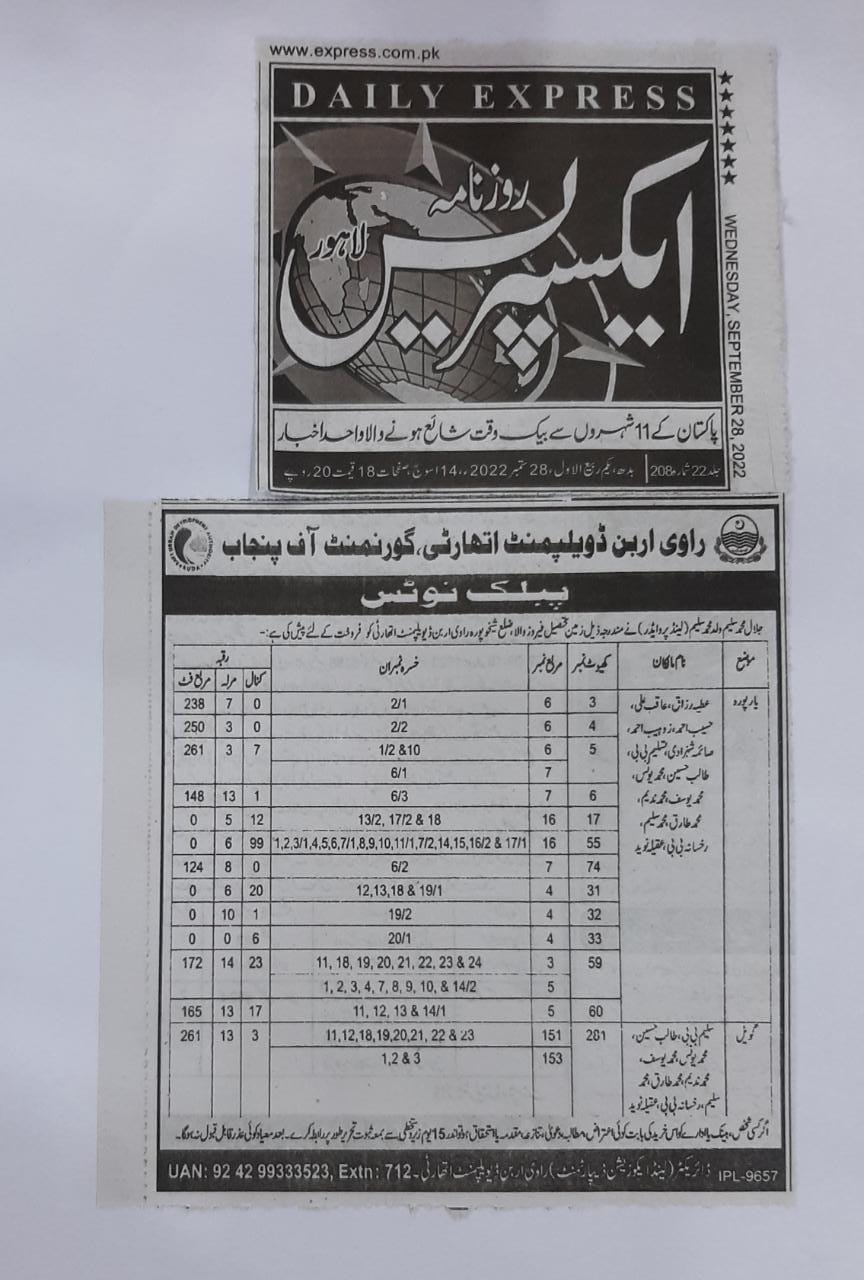 www.express.com.pk
DAILY EXPRESS
روزنامہ
ایکسپریس
لاہور
WEDNESDAY, SEPTEMBER 28, 2022
پاکستان کے 11 شہروں سے بیک وقت شائع ہونے والا واحد اخبار
جلد 22 شمارہ 208 بدھ، یکم ربیع الاول، 28 ستمبر 2022ء، 14 اسوج، صفحات 18 قیمت 20 روپے
راوی اربن ڈویلپمنٹ اتھارٹی، گورنمنٹ آف پنجاب
RAVI URBAN DEVELOPMENT AUTHORITY RUDA
پبلک نوٹس
جلال محمد سلیم ولد محمد سلیم (لینڈ پرووائیڈر) نے مندرجہ ذیل زمین تحصیل فیروزوالا، ضلع شیخوپورہ راوی اربن ڈویلپمنٹ اتھارٹی کو فروخت کے لئے پیش کی ہے:-
موضع نام مالکان کھیوٹ نمبر مربع نمبر خسرہ نمبران رقبہ
کنال مرلہ مربع فٹ
یارپورہ عطیہ رزاق، عاقب علی، 3 6 2/1 0 7 238
حسیب احمد، زوہیب احمد، 4 6 2/2 0 3 250
صائمہ شہزادی، تسلیم بی بی، 5 6 1/2 &10 7 3 261
طالب حسین، محمد یونس، 7 6/1
محمد یوسف، محمد ندیم، 6 7 6/3 1 13 148
محمد طارق، محمد سلیم، 17 16 13/2, 17/2 & 18 12 5 0
رخسانہ بی بی، عقیلہ نوید 55 16 1,2,3/1,4,5,6,7/1,8,9,10,11/1,7/2,14,15,16/2 & 17/1 99 6 0
74 7 6/2 0 8 124
31 4 12,13,18 & 19/1 20 6 0
32 4 19/2 1 10 0
33 4 20/1 6 0 0
59 3 11, 18, 19, 20, 21, 22, 23 & 24 23 14 172
5 1, 2, 3, 4, 7, 8, 9, 10, & 14/2
60 5 11, 12, 13 & 14/1 17 13 165
سلیم بی بی، طالب حسین، 281 151 11,12,18,19,20,21, 22 & 23 3 13 261
محمد یونس، محمد یوسف، 153 1,2 & 3
محمد ندیم، محمد طارق، محمد
سلیم، رخسانہ بی بی، عقیلہ نوید
اگر کسی شخص، بینک یا ادارے کو اس خرید کی بابت کوئی اعتراض، مطالبہ، دعویٰ، تنازعہ، مقدمہ یا استحقاق ہو تو اندر 15 یوم زیر دستخطی سے بمعہ ثبوت تحریری طور پر رابطہ کرے۔ بعد میعاد کوئی عذر قابل قبول نہ ہوگا۔
ڈائریکٹر (لینڈ ایکوزیشن ڈیپارٹمنٹ) راوی اربن ڈویلپمنٹ اتھارٹی۔ UAN: 92 42 99333523, Extn: 712
IPL-9657